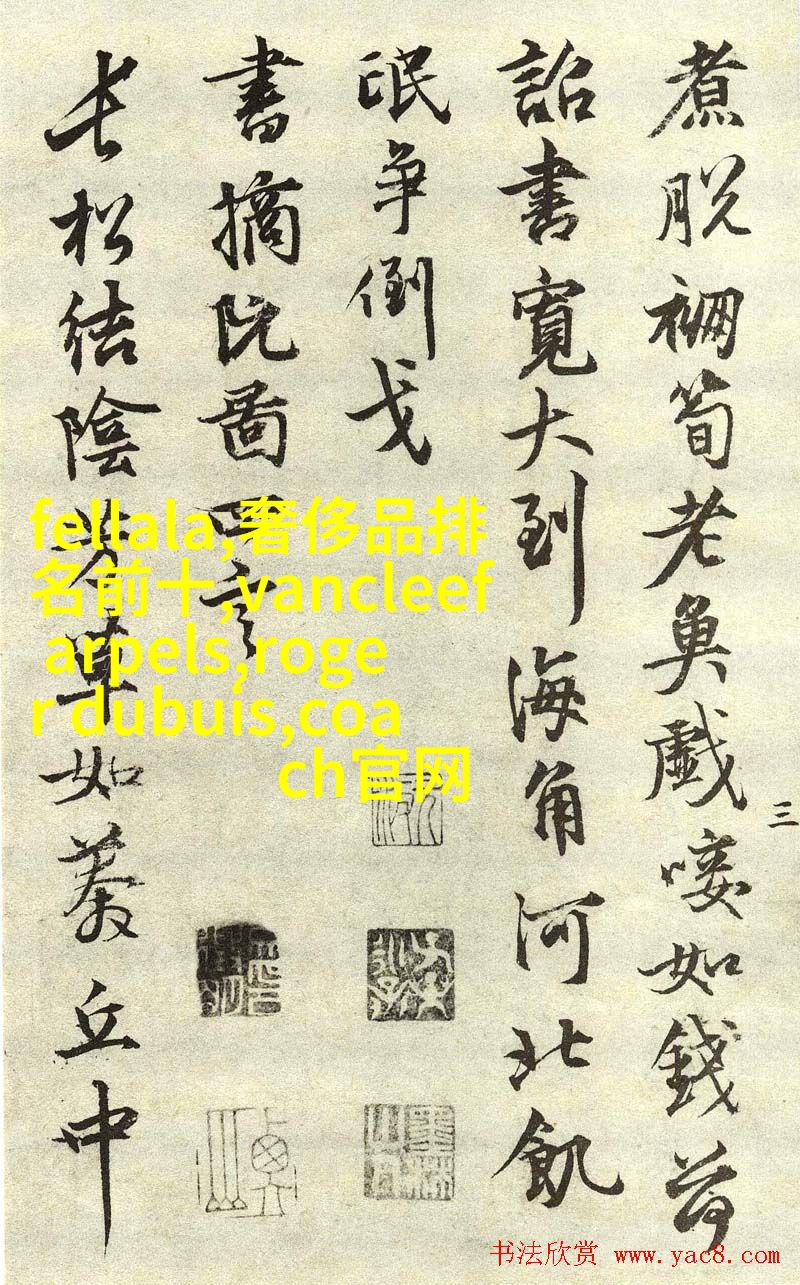 煮脱筍老魚戲唼如錢荷
詔書寬大到海角河北飢
氓争倒戈
書摘阮圖四言
長松结陰芳草如丘中
三
fellala,奢侈品排
名前十,vancleef
arpels,roge
r dubuis,coa
ch官网
书法欣赏 www.yac8.com